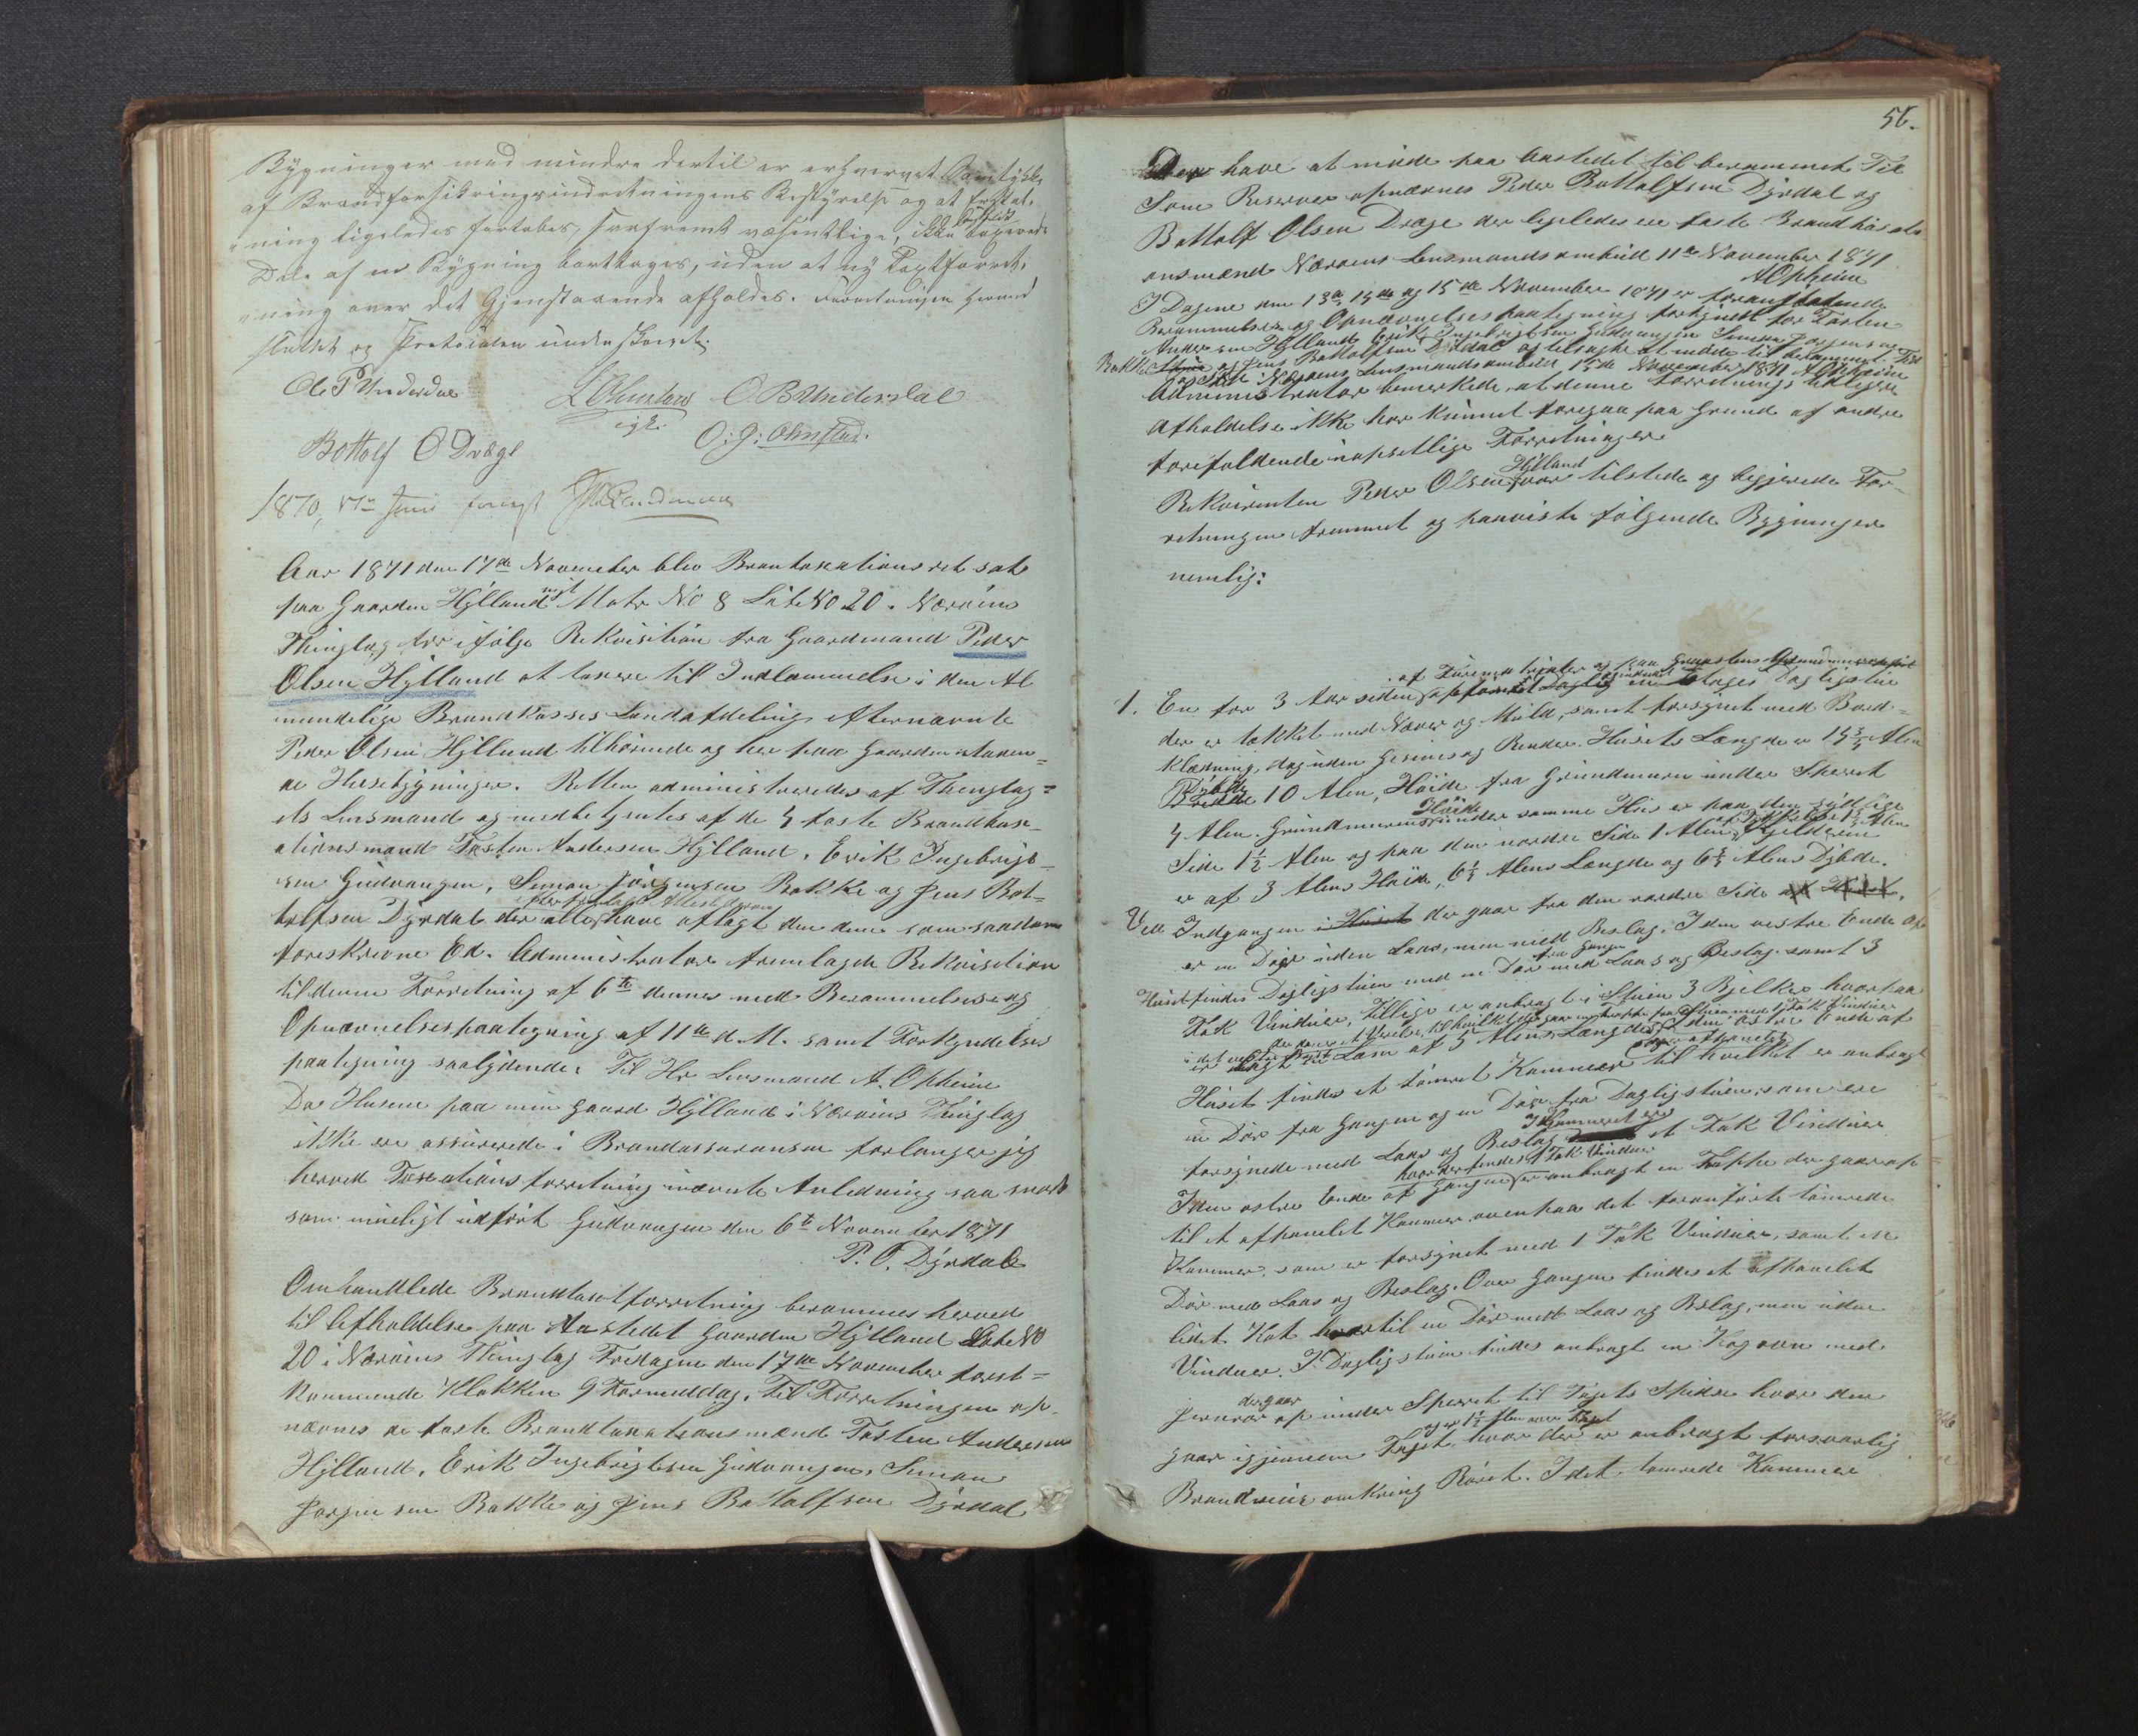 Bygninger med mindre dertil er erhvervet Samtykke
af Brandforsikringsindretningens Bestyrelse og at Erstat-
ning ligeledes fortabes, saafremt væsentlige, ikke særskilt taxerede
Dele af en Bygning borttages, uden at ny Taxtforret-
ning over det Gjenstaaende afholdes. Forretningen hermed
sluttet og Protocolen underskrevet.
Ole P Underdal
O B Underdal
Bottolf O Dræge
O: J: Ohnstad.
1870, Juni
Aar 1871 den 17de November blev Brantaxationsret sat
paa Gaarden Hylland nyt Matr No 8 Løbe No 20. Nærøens
Thinglag for ifølge Rekvisition fra Gaardmand Peder
Olsen Hylland at taxere til Indlemmelse i den Al
mindelige Brandkasses Landafdeling efternævnte
Peder Olsen Hylland tilhørende og her paa Gaarden staaen=
de Husebygninger. Retten administreredes af Thinglag=
ets Lensmand og medbetjentes af de 4 faste Brandtaxa-
tionsmænd Torsten Andersen Hylland, Erik Ingebrigt-
sen Gudvangen, Simon Jørgensen Bakke og Jens Bot-
tolfsen Dyrdal der alle have aflagt den dem som saadanne
foreskrevne Ed. Administrator fremlagde Rekvisition
til denne Forretning af 6te dennes med Berammelses og
Opnævnelsespaategning af 11te d. M. samt Forkyndelses
paategning saalydende: Til Hr Lensmand A. Opheim
Da Husene paa min Gaard Hylland i Nærøens Thinglag
ikke ere assurerede i Brandassuransen forlanger jeg
herved Taxationsforretning i nævnte Anledning saa snart
som mueligt udført Gudvangen den 6te November 1871
P. O. Dyrdal
Omhandlede Brandtaxtforretning berammes herved
til Afholdelse paa Aastedet Gaarden Hylland Løbe No
20 i Nærøens Thinglag Fredagen den 17de November først=
kommende Klokken 9 Formiddag. Til Forretningen op-
nævnes de faste Brandtaxationsmænd Torsten Andersen
Hylland, Erik Ingebrigtsen Gudvangen, Simon
Jørgensen Bakke og Jens Bottolfsen Dyrdal
56.
Der have at møde paa Aastedet til berammet Tid
Som Reserver opnævnes Peder Bottolfsen Dyrdal og
Bottolf Olsen Dræge der ligeledes ere faste Brandtaxati-
onsmænd Nærøens Lensmandsombud 11te November 1871
A Opheim
I Dagene den 13de 14de og 15de November 1871 er foranstaaende
Berammelses og Opnævnelsespaategning forkyndt for Torsten
Andersen Hylland Erik Ingebrigtsen Gudvangen Simon Jørgensen
Bakke og Jens Bottolfsen Dyrdal og tilsagte at møde til berammet Tid
og Sted. Nærøens Lensmandsombud 15de November 1871 A Opheim
Administrator bemerkede, at denne Forretnings tidligere
Afholdelse ikke har kunnet foregaa paa Grund af andre
forefaldende uopsetlige Forretninger
Rekvirenten Peder Olsen Hylland var tilstede og begjerede For-
retningen fremmet og paaviste følgende Bygninger
nemlig:
1. En for 3 Aar siden af Furematerialer og paa Graastens Grundmur opført Dagligstue
der er tækket med Næver og Muld, samt forsynet med Bord=
klædning, dog uden Gesimes og Render. Husets Længde er 14 3/4 Alen
Dybde 10 Alen, Høide fra Grundmuren under Sperret
4 Alen. Grundmurens Høide under samme Hus er paa den sydlige
Side 1 1/2 Alen og paa den nordre Side 1 Alen, Kjelderen
er af 3 Alens Høide, 6 1/2 Alens Længde og 6 1/2 Alens Dybde.
Ved Indgangen der gaar fra den nordre Side
er en Dør uden Laas, men med Beslag. I den vestre Ende af
Huset findes Dagligstuen med en Dør fra Gangen med Laas og Beslag samt 3
Fak Vinduer, Tillige er anbragt i Stuen 3 Bjelker hvorpaa
er lagt en Læm af 5 Alens Længde. I den østre Ende af
Huset findes et tømret Kammer til hvilket er anbragt
en Dør fra Gangen og en Dør fra Dagligstuen, som ere
forsynede med Laas og Beslag I Kammeret er et Fak Vinduer
I den østre Ende af Gangen hvor der findes 1 Fak Vinduer er anbragt en Trappe der gaar op
til et afpanelet Kammer ovenpaa det foranførte tømrede
Kammer, som er forsynet med 1 Fak Vinduer, samt en
Dør med Laas og Beslag. Over Gangen findes et afpanelet
lidet Kot hvortil en Dør med Laas og Beslag, men uden
Vinduer. I Dagligstuen findes anbragt en Kogovn med
Jernrør der gaar op under Sperret til Tagets Spidse hvor den
gaar igjennem Taget og er 1 1/2 Alen over Taget hvor der er anbragt forsvarlig
Brandsikring omkring Røret. I det tømrede Kammer